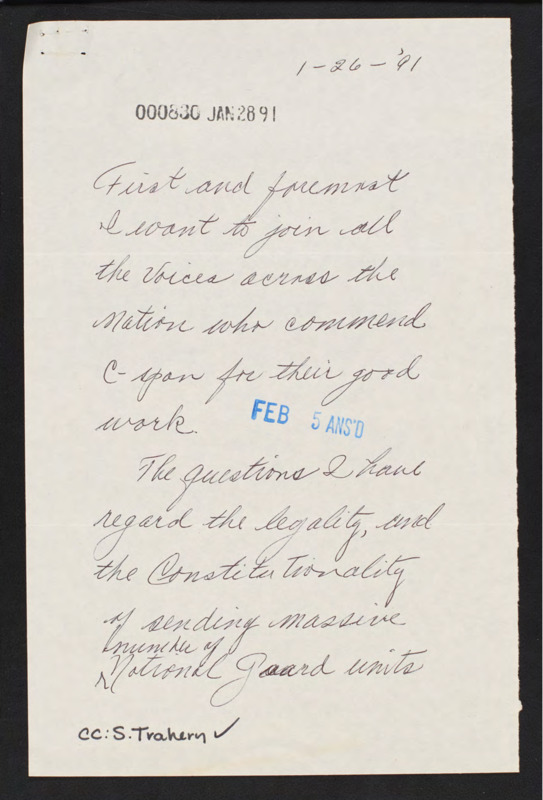 1-26-'91
000830 JAN 28 91
First and foremost
I want to join all
the Voices across the
Nation who commend
C-span for their good
work.
FEB 5 ANS'D
The questions I have
regard the legality, and
the Constitutionality
of sending massive
number of
National Guard units
CC: S. Trahern ✓